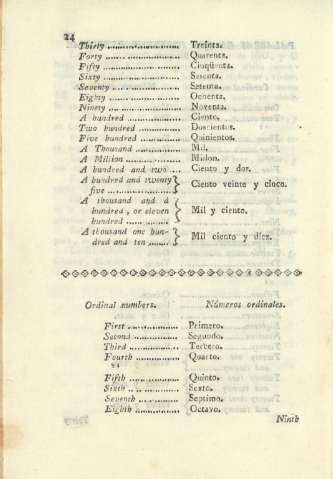 24
Thirty .................. Treinta.
Forty .................. Quarenta.
Fifty .................. Cinqüenta.
Sixty .................. Sesenta.
Seventy .................. Setenta.
Eighty .................. Ochenta.
Ninety .................. Noventa.
A hundred .................. Ciento.
Two hundred ............... Doscientos.
Five hundred ............... Quinientos.
A Thousand ............... Mil.
A Million .................. Millon.
A hundred and two .... Ciento y dos.
A hundred and twenty
five ..................... } Ciento veinte y cinco.
A thousand and a
hundred , or eleven } Mil y ciento.
hundred ...............
A thousand one hun-
dred and ten ....... } Mil ciento y diez.
Ordinal numbers. Números ordinales.
First .................. Primero.
Second .................. Segundo.
Third .................. Tercero.
Fourth .................. Quarto.
Fifth .................. Quinto.
Sixth .................. Sexto.
Seventh ............... Septimo.
Eighth ............... Octavo.
Ninth